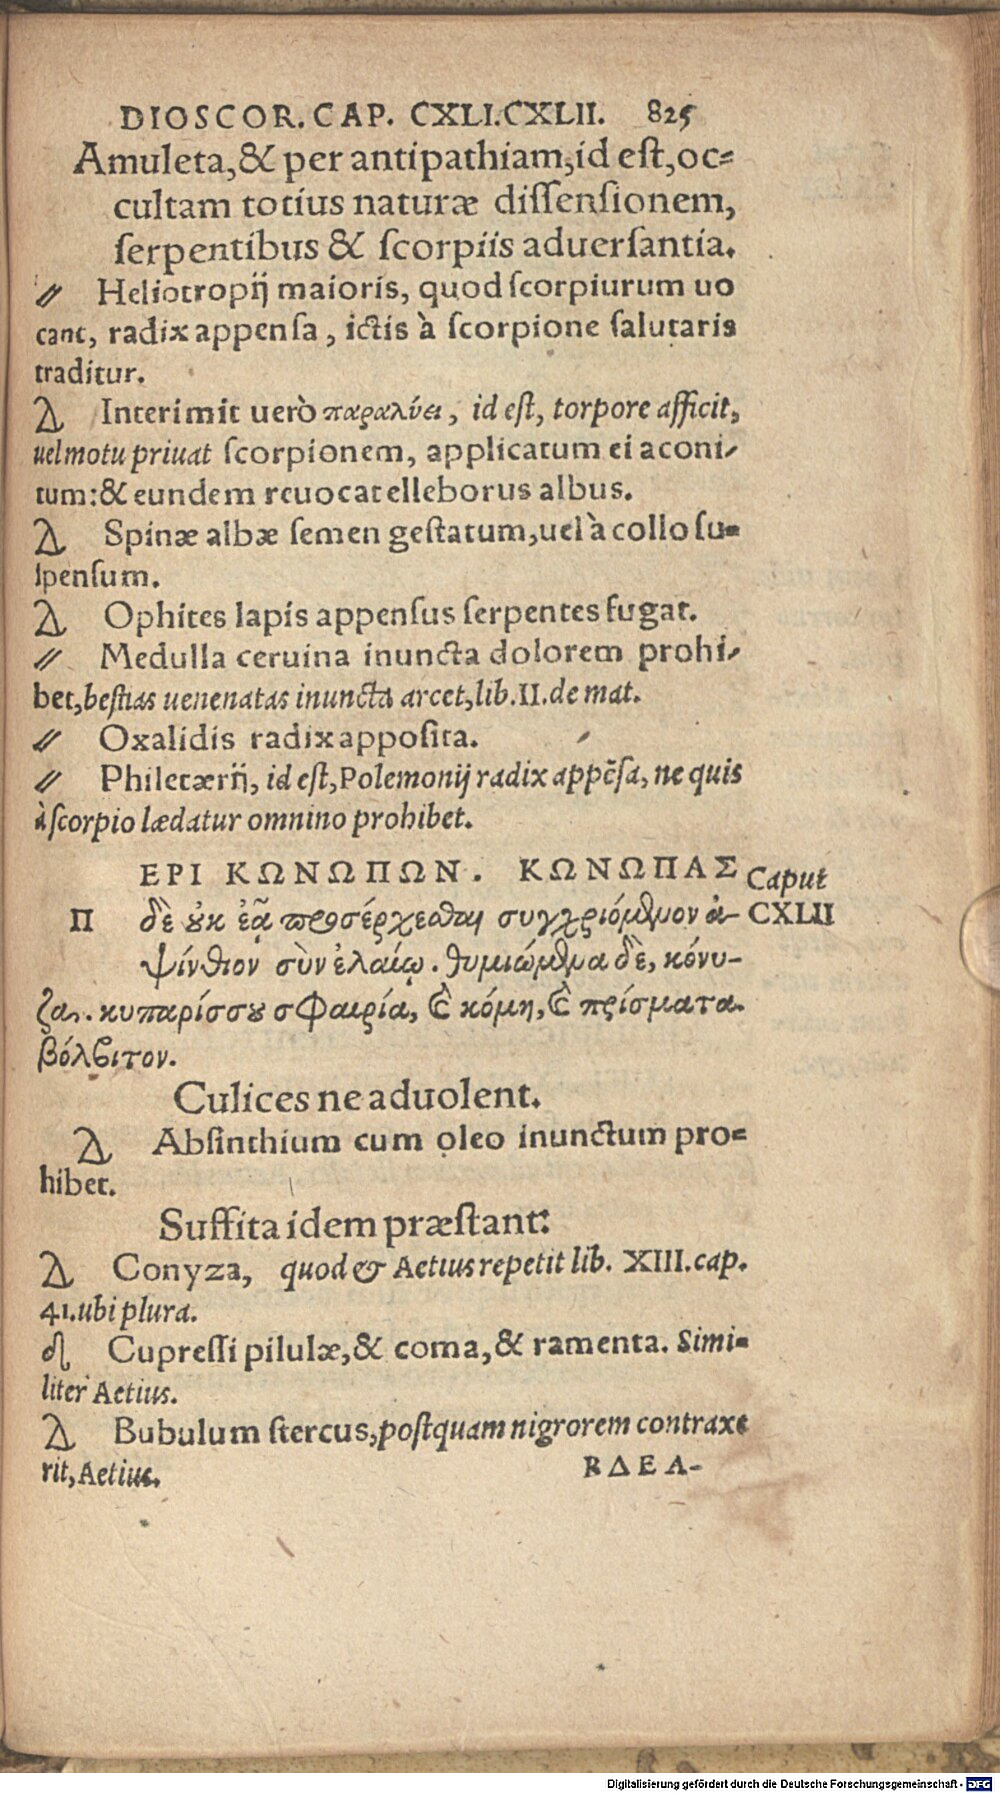 DIOSCOR. CAP. CXLI. CXLII. 825
Amuleta, & per antipathiam, id est, oc=
cultam totius naturæ dissensionem,
serpentibus & scorpiis aduersantia.
// Heliotropij maioris, quod scorpiurum uo
cant, radix appensa, ictis à scorpione salutaris
traditur.
Δ Interimit uerò παραλύει, id est, torpore afficit,
uel motu priuat scorpionem, applicatum ei aconi-
tum: & eundem reuocat elleborus albus.
Δ Spinæ albæ semen gestatum, uel à collo su=
spensum.
Δ Ophites lapis appensus serpentes fugat.
// Medulla ceruina inuncta dolorem prohi-
bet, bestias uenenatas inuncta arcet, lib. II. de mat.
// Oxalidis radix apposita.
// Philetærij, id est, Polemonij radix appẽsa, ne quis
à scorpio lædatur omnino prohibet.
ΕΡΙ ΚΩΝΩΠΩΝ. ΚΩΝΩΠΑΣ Caput
Π δὲ οὐκ ἐᾷ προσέρχεσθαι συγχριόμενον ἀ- CXLII
ψίνθιον σὺν ἐλαίῳ. θυμιώμενα δὲ, κόνυ-
ζα. κυπαρίσσου σφαιρία, καὶ κόμη, καὶ πρίσματα.
βόλβιτον.
Culices ne aduolent.
Δ Absinthium cum oleo inunctum pro=
hibet.
Suffita idem præstant:
Δ Conyza, quod & Aetius repetit lib. XIII. cap.
41. ubi plura.
Cupressi pilulæ, & coma, & ramenta. Simi=
liter Aetius.
Δ Bubulum stercus, postquam nigrorem contraxe
rit, Aetius.
ΒΔΕΛ-
Digitalisierung gefördert durch die Deutsche Forschungsgemeinschaft - DFG